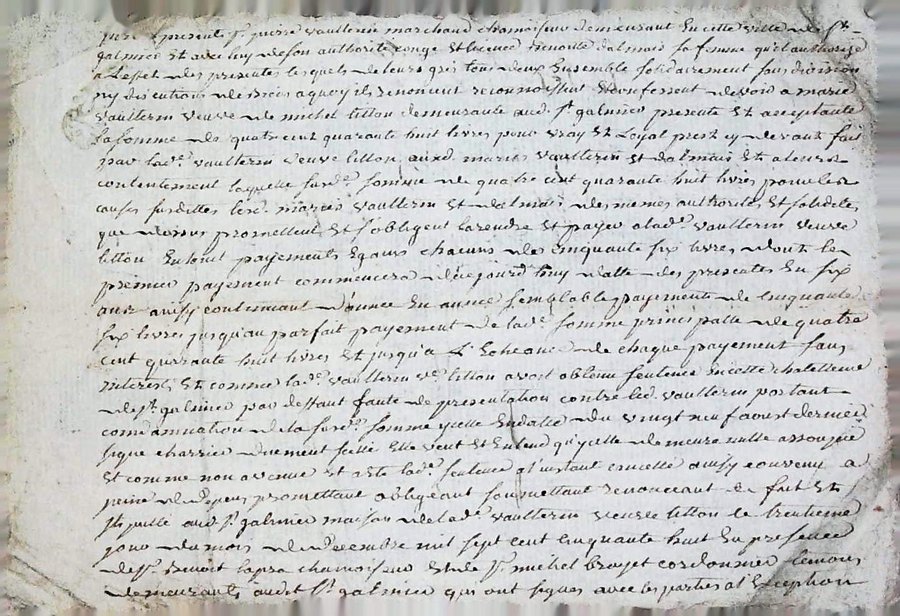 presents Sr pierre vaultrin marchand chamoiseur demeurant En cette ville de St
galmier Et avec luy de son authorité conge Et licence benoite dalmais sa femme quil authorise
a Leffet des presentes lesquels de leurs grés tous deux Ensemble solidairement sans division
ny discution de biens a quoy ils renoncent reconnoissent Et confessent devoir a marie
vaultrin veuve de michel litton demeurante aud. St galmier presente Et acceptante
La somme de quatre cent quarante huit livres pour vray Et Loyal prest cy devant fait
par lad.e vaultrin veuve litton auxd. mariés vaultrin Et dalmais Et a leur
contentement laquelle susd.e somme de quatre cent quarante huit livres pour les
causes susdittes lesd. mariés vaultrin Et dalmais des memes authorités Et solidités
que dessus promettent Et s'obligent la rendre Et payer a lad.e vaultrin veuve
litton En huit payements Egaux chacuns de cinquante six livres dont le
premier payement commencera dece jourd'huy datte des presentes En six
ans ainsy continuant d'année En année semblables payements de cinquante
six livres jusqu'au parfait payement de lad.e somme principalle de quatre
cent quarante huit livres Et jusqu'a L'Echeance de chaque payement sans
interests Et comme lad.e vaultrin v.e litton avoit obtenu sentence En cette chatellenie
de St galmier par deffaut faute de presentation contre led. vaultrin portant
condamnation de la susd.e somme ycelle En datte du vingt neuf aoust dernier
signé charvier duement scellé Elle veut Et Entend qu'ycelle demeure nulle assoupie
Et comme non avenue Et a Esté lad.e sentence a l'instant cancellé ainsy convenu a
peine de depens promettant obligeant soumettant renonceant &a fait Et
passé aud. St galmier maison de lad.e vaultrin veuve litton le trentieme
jour du mois de decembre mil sept cent cinquante huit En presence
de Sr benoit lapra chamoiseur Et de Sr michel brayet cordonnier temoins
demeurants audit St galmier qui ont signés avec les parties a l'Exception